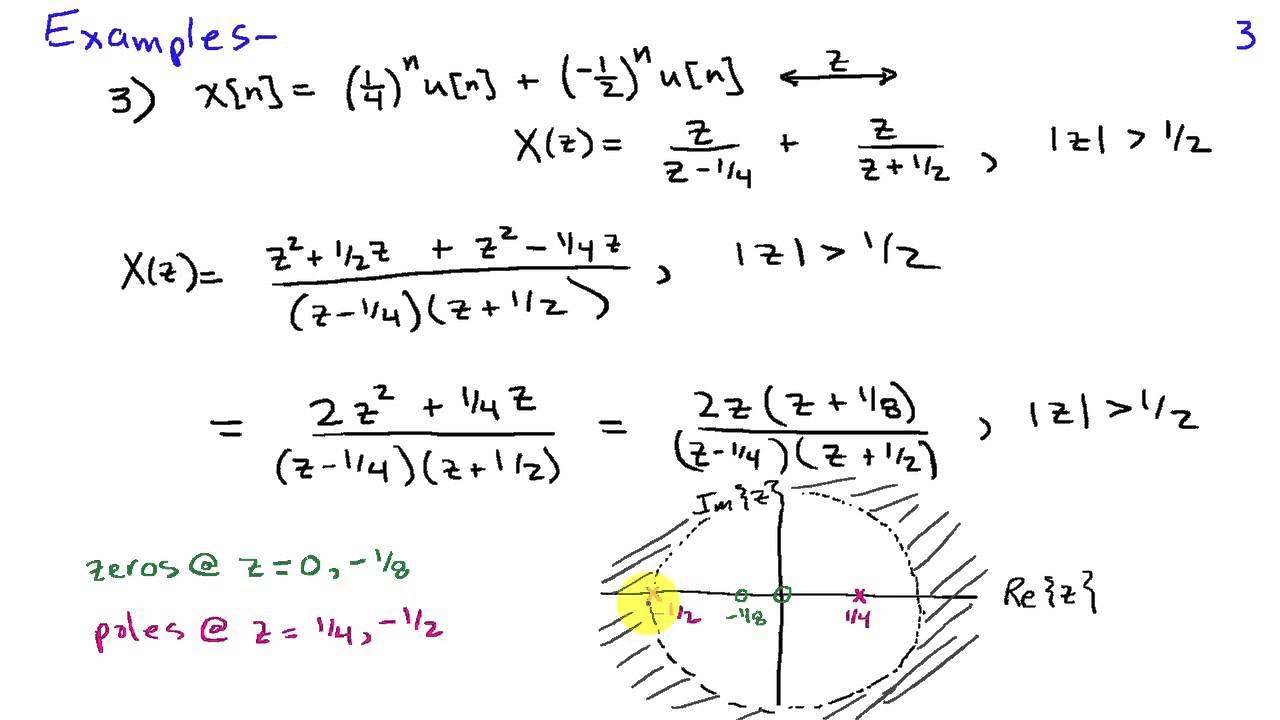 Examples- 3
3) x[n] = (1/4)^n u[n] + (-1/2)^n u[n] ⟷ z
X(z) = z/(z-1/4) + z/(z+1/2), |z| > 1/2
X(z) = (z^2 + 1/2 z + z^2 - 1/4 z)/((z-1/4)(z+1/2)), |z| > 1/2
= (2z^2 + 1/4 z)/((z-1/4)(z+1/2)) = 2z(z+1/8)/((z-1/4)(z+1/2)), |z| > 1/2
Im{z}
zeros @ z = 0, -1/8
Re{z}
-1/2 -1/8 1/4
poles @ z = 1/4, -1/2